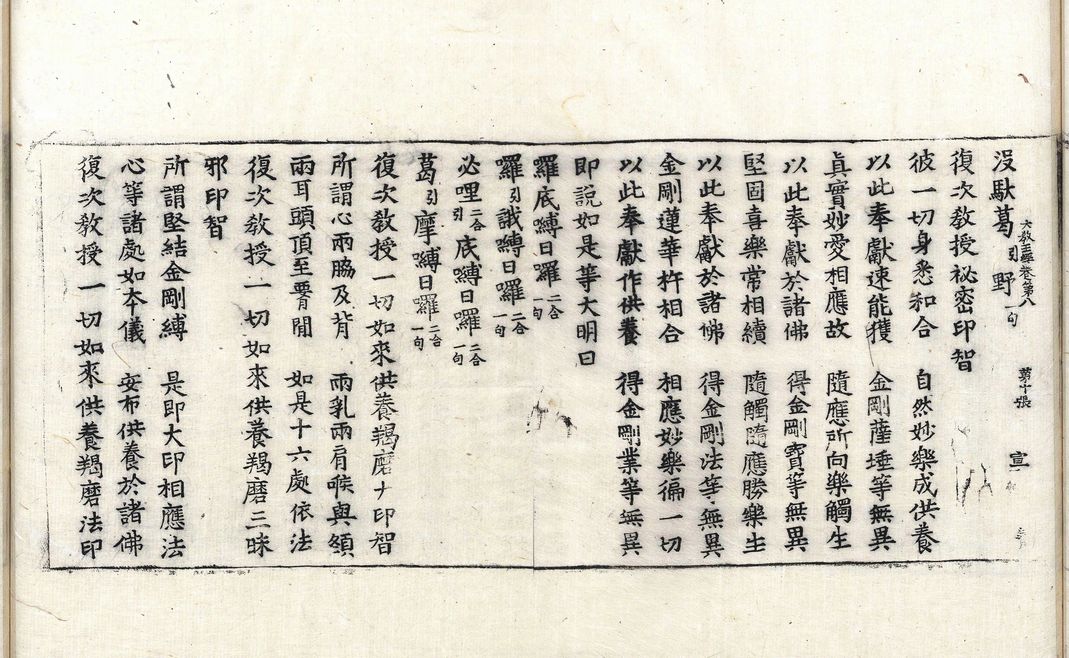 沒馱葛引野一句
大教王經卷第八 第十張 宣
復次教授祕密印智
彼一切身悉和合 自然妙樂成供養
以此奉獻速能獲 金剛薩埵等無異
真實妙愛相應故 隨應所向樂觸生
以此奉獻於諸佛 得金剛寶等無異
堅固喜樂常相續 隨觸隨應勝樂生
以此奉獻於諸佛 得金剛法等無異
金剛蓮華杵相合 相應妙樂徧一切
以此奉獻作供養 得金剛業等無異
即說如是等大明曰
囉底嚩日囉二合一句
囉引誐嚩日囉二合一句
必哩二合引底嚩日囉二合一句
葛引摩嚩日囉二合一句
復次教授一切如來供養羯磨大印智
所謂心兩脇及背 兩乳兩肩喉與頞
兩耳頭頂至臀間 如是十六處依法
復次教授一切如來供養羯磨三昧
邪印智
所謂堅結金剛縛 是即大印相應法
心等諸處如本儀 安布供養於諸佛
復次教授一切如來供養羯磨法印